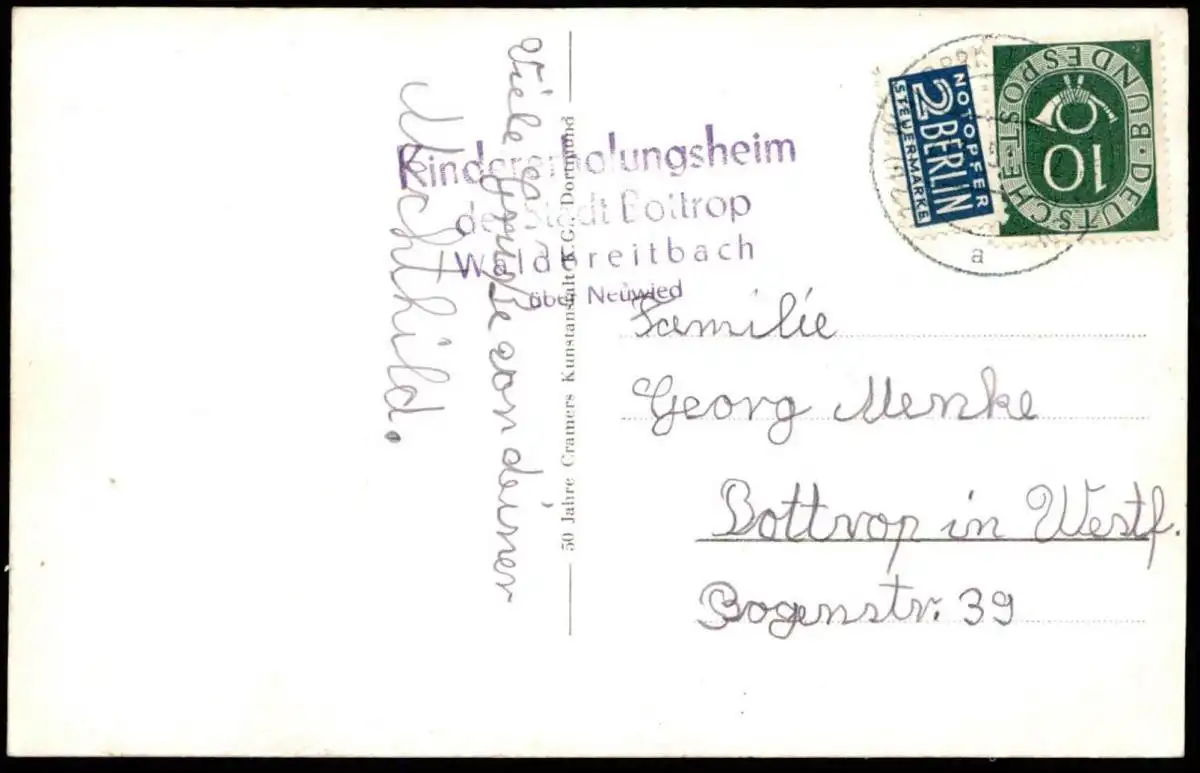 Viele Grüße von deiner
Mechthild.
Kindererholungsheim
der Stadt Bottrop
Waldbreitbach
über Neuwied
50 Jahre Cramers Kunstanstalt K.G., Dortmund
NOTOPFER
2 BERLIN
STEUERMARKE
DEUTSCHE · BUNDESPOST
10
a
Familie
Georg Menke
Bottrop in Westf.
Bogenstr. 39